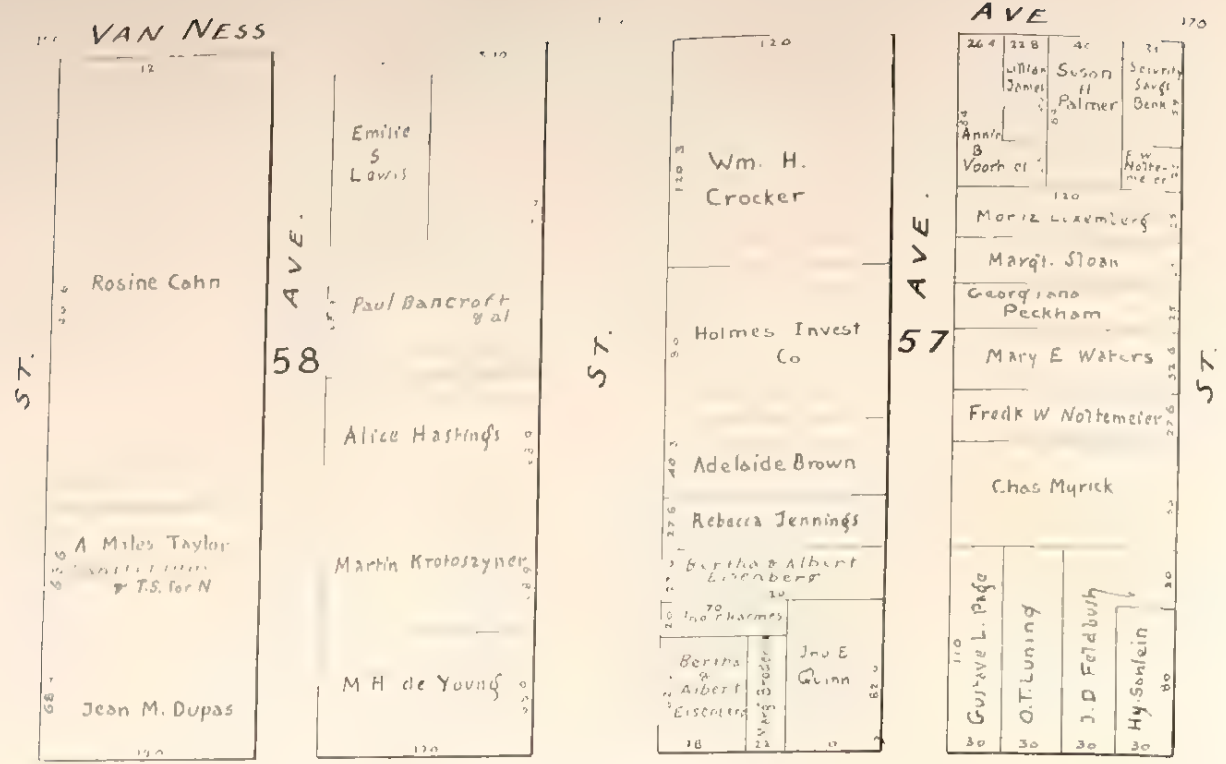 VAN NESS
AVE
170
ST.
12
Rosine Cahn
A Miles Taylor
& T.S. for N
68
Jean M. Dupas
120
AVE.
58
Emilie
S
Lewis
Paul Bancroft
& al
Alice Hastings
Martin Krotoszyner
M H de Young
120
ST.
120
120 3
Wm. H.
Crocker
90
Holmes Invest
Co
40 3
Adelaide Brown
27 6
Rebecca Jennings
Bertha & Albert
Eisenberg
20
70
Bertha
&
Albert
Eisenberg
Marg Broder
Jno E
Quinn
82
22
AVE.
57
26 4
22 8
Annie
B
Lillian
James
Susan
H
Palmer
Security
Savgs
Bank
F W
Nolte-
meier
120
Margt. Sloan
Georgiana
Peckham
Mary E Waters
32 6
Fredk W Noltemeier
27 6
Chas Myrick
110
Gustave L. Page
O.T. Luning
J. D Feldbush
Hy. Sonlein
80
30
30
30
30
ST.